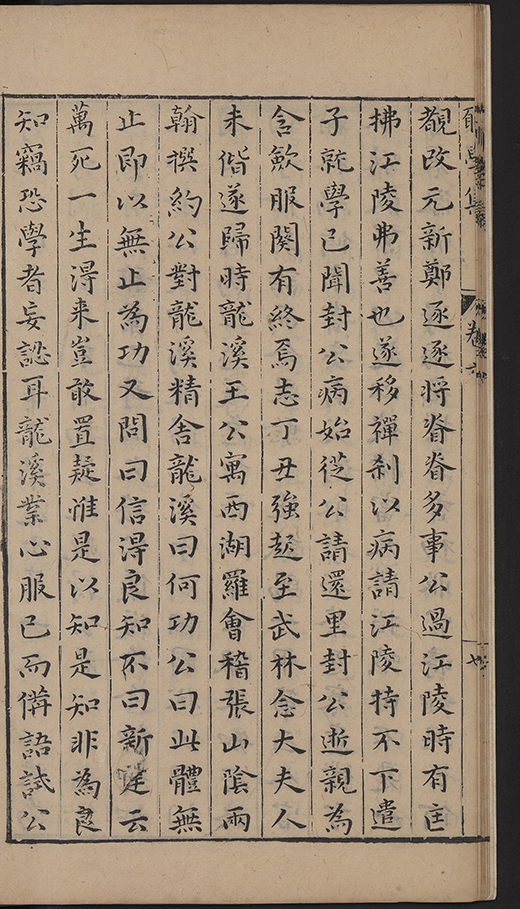 覩改元新鄭逐逐將眷眷多事公過江陵時有匡
拂江陵弗善也遂移禪刹以病請江陵持不下遣
子就學已聞封公病始從公請還里封公逝親為
含歛服闋有終焉志丁丑強起至武林念大夫人
未偕遂歸時龍溪王公寓西湖羅會稽張山陰兩
翰撰約公對龍溪精舍龍溪曰何功公曰此體無
止即以無止為功又問曰信得良知不曰新建云
萬死一生得来豈敢置疑惟是以知是知非為良
知竊恐學者妄認耳龍溪業心服已而偹語試公